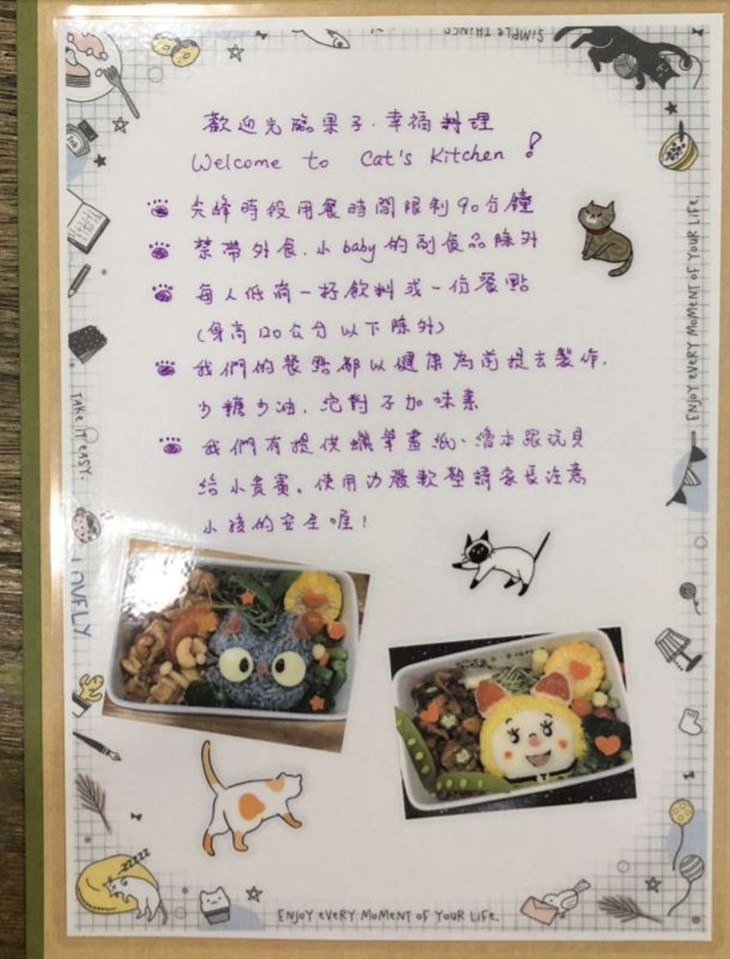 SIMPLE THINGS
歡迎光臨果子.幸福料理
Welcome to Cat's Kitchen!
尖峰時段用餐時間限制90分鐘
禁帶外食.小baby的副食品除外
每人低消一杯飲料或一份餐點
(身高120公分以下除外)
我們的餐點都以健康為前提去製作.
少糖少油.絕對不加味素
我們有提供蠟筆畫紙、繪本跟玩具
給小貴賓。使用沙發軟墊請家長注意
小孩的安全喔!
ENJOY EVERY MOMENT OF YOUR LIFE.
TAKE IT EASY.
LOVELY
zzzzz
ENJOY EVERY MOMENT OF YOUR LIFE.